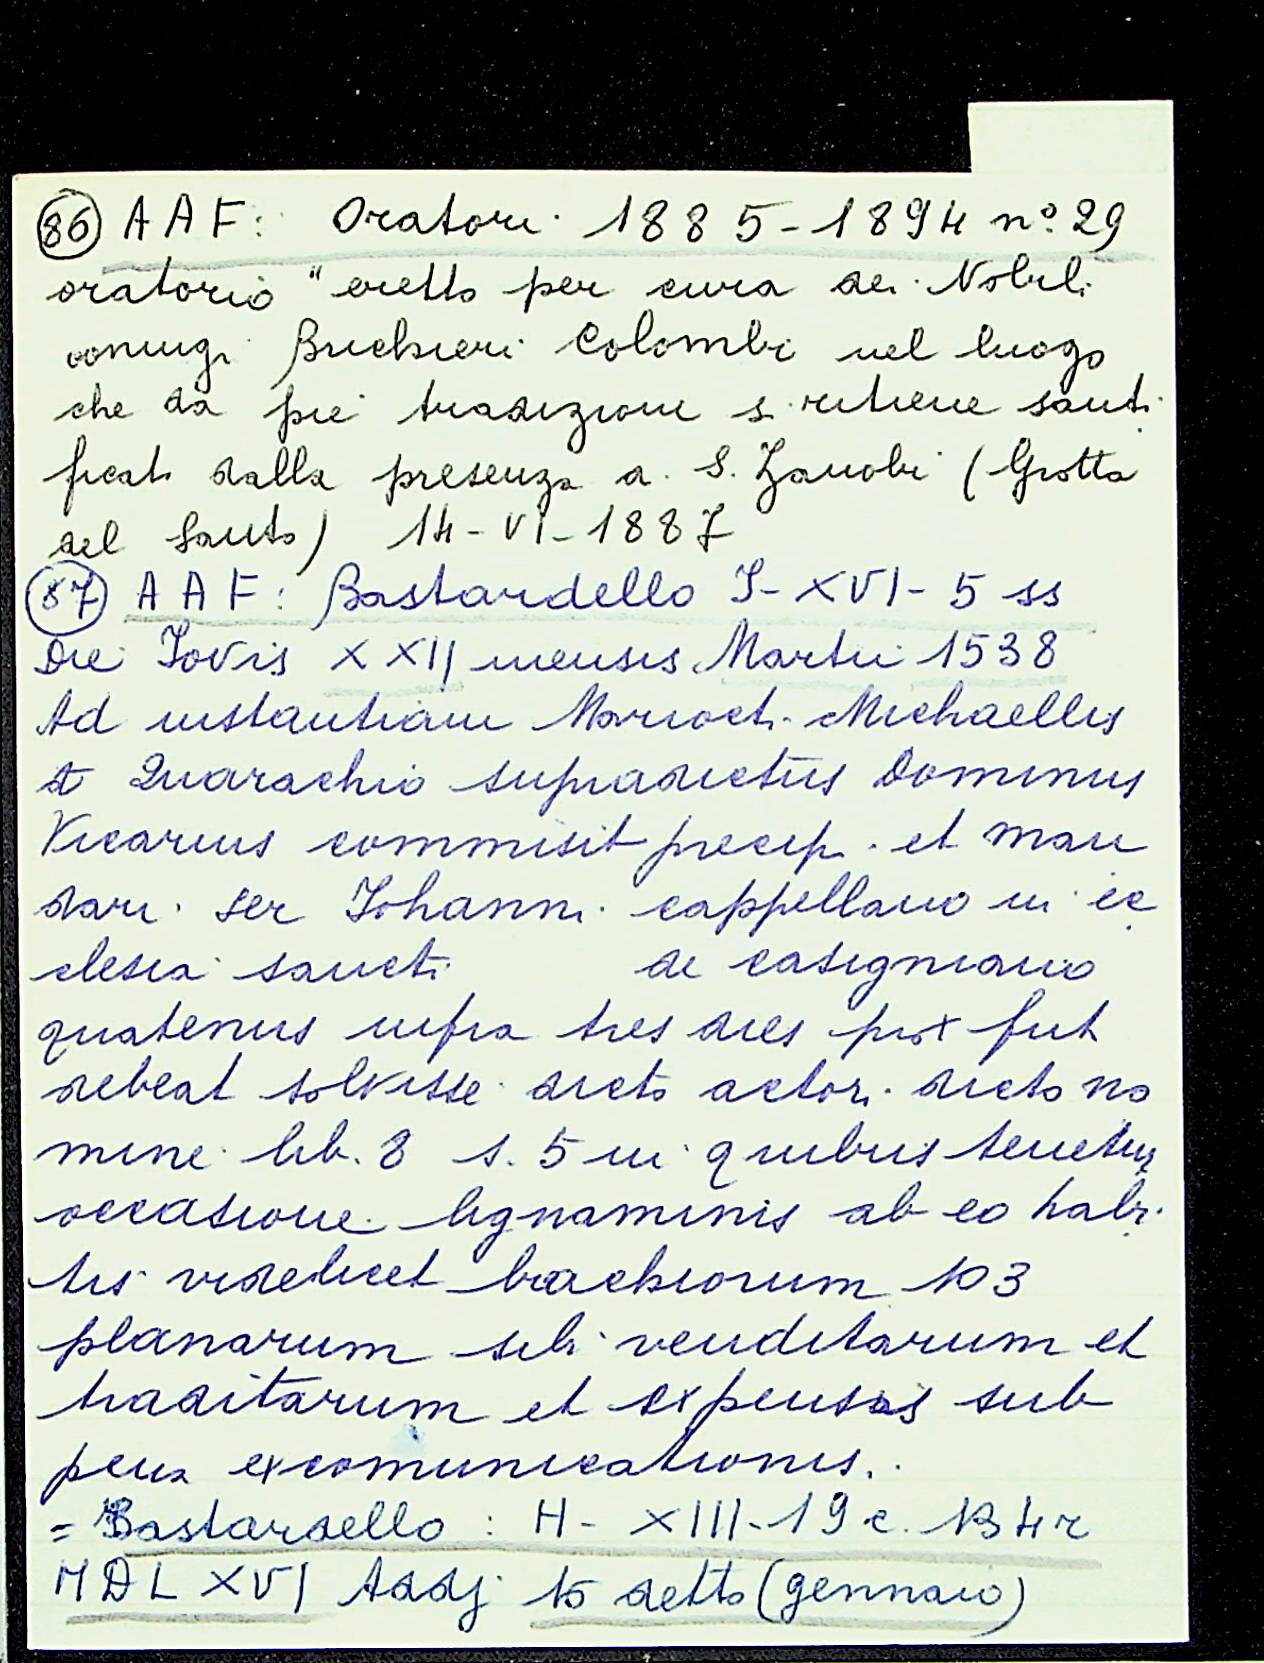 86 AAF: Oratori 1885-1894 n° 29
oratorio "eretto per cura dei Nobili
coniugi Buchieri Colombi nel luogo
che da pie tradizioni si ritiene santi
ficato dalla presenza di S. Zanobi (Grotta
del Santo) 14-VI-1887
87 AAF: Bastardello I-XVI-5 ss
Die Jovis XXII mensis Martii 1538
Ad instantiam Marioct. Michaellis
de Quarachio supradictus Dominus
Vicarius commisit precip. et man
dari ser Johanni cappellano in ec
clesia sancti de casigniano
quatenus infra tres dies prox fut
debeat solvisse dicto actori dicto no
mine lib. 8 s. 5 in quibus tenetur
occasione lignaminis ab eo habi
tis videlicet brachiorum 103
planarum sibi venditarum et
traditarum et expensis sub
pena excomunicationis.
= Bastardello: H-XIII-19 c. 134r
MDLXVI Addj 15 detto (gennaio)